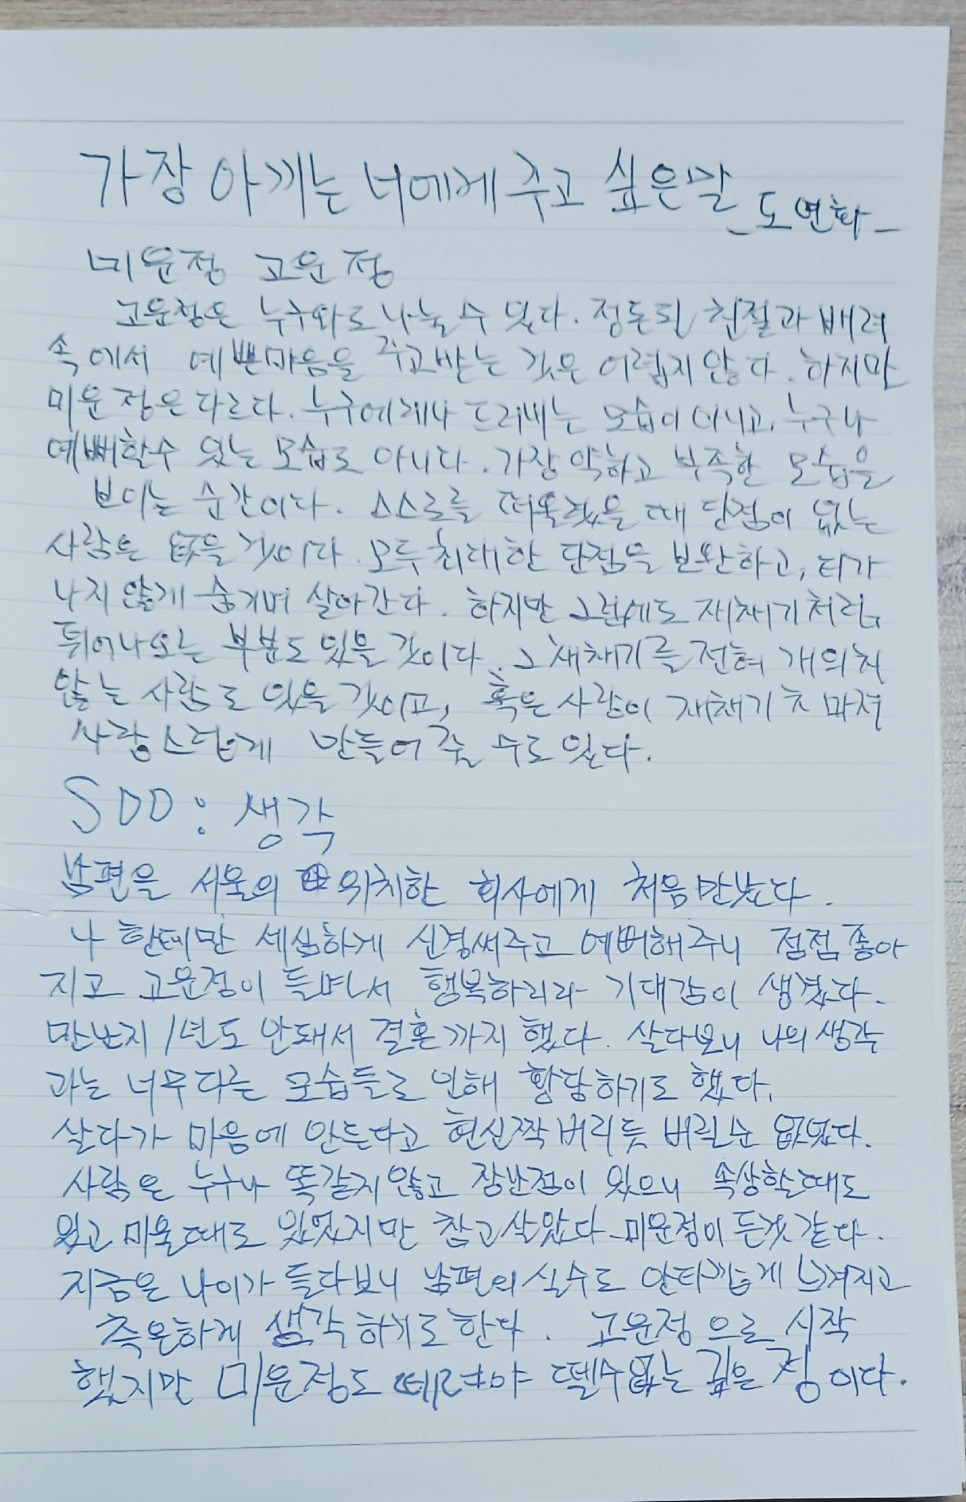 가장 아끼는 너에게 주고 싶은말 - 도연화 -
미운정 고운정
고운정은 누구와도 나눌 수 있다. 정돈된 친절과 배려
속에서 예쁜마음을 주고받는 것은 어렵지않다. 하지만
미운 정은 다르다. 누구에게나 드러내는 모습이 아니고, 누구나
예뻐할수 있는 모습도 아니다. 가장 약하고 부족한 모습을
보이는 순간이다. 스스로를 떠올렸을 때 단점이 없는
사람은 없을 것이다. 모두 최대한 단점을 보완하고, 티가
나지 않게 숨기며 살아간다. 하지만 그런에도 재채기처럼
튀어나오는 부분도 있을 것이다. 그 재채기를 전혀 개의치
않는 사람도 있을 것이고, 혹은 사람이 재채기 초 마저
사랑스럽게 만들어 줄 수도 있다.
SDD : 생각
남편을 서울의 위치한 회사에게 처음만났다.
나 한테만 세심하게 신경써주고 예뻐해주니 점점좋아
지고 고운정이 들면서 행복하리라 기대감이 생겼다.
만난지 1년도 안돼서 결혼까지 했다. 살다보니 나의 생각
과는 너무다른 모습들로 인해 황당하기도 했다.
살다가 마음에 안든다고 헌신짝 버리듯 버릴순 없었다.
사람은 누구나 똑같지않고 장반점이 있으니 속상할때도
있고 미울때도 있었지만 참고살았다-미운정이 든것 같다.
지금은 나이가 들다보니 남편의 실수도 안타깝게 느껴지고
측은하게 생각하기도한다. 고운정 으로 시작
했지만 미운정도 떼려야 뗄수없는 깊은 정이다.